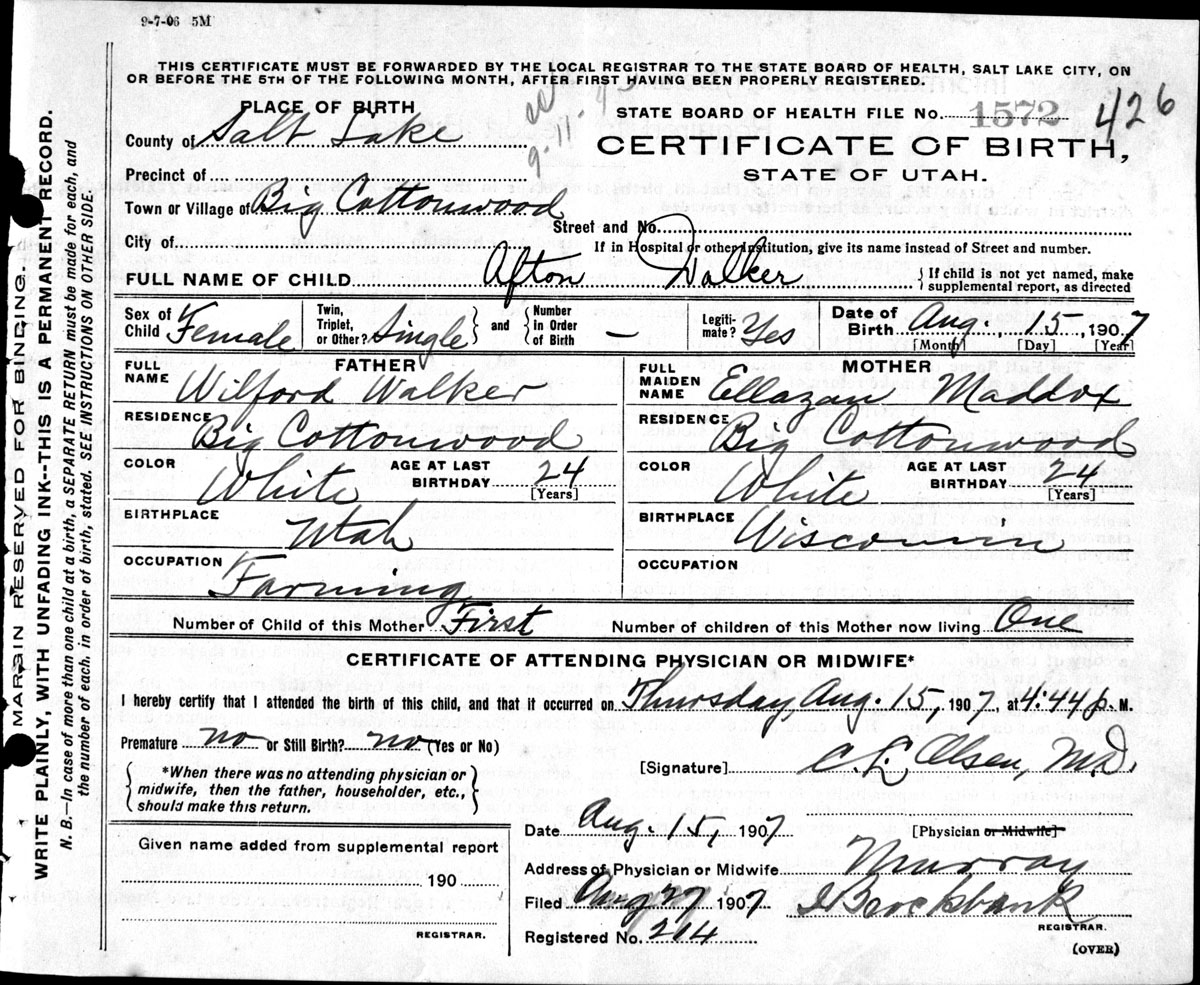 9-7-06 5M
THIS CERTIFICATE MUST BE FORWARDED BY THE LOCAL REGISTRAR TO THE STATE BOARD OF HEALTH, SALT LAKE CITY, ON
OR BEFORE THE 5TH OF THE FOLLOWING MONTH, AFTER FIRST HAVING BEEN PROPERLY REGISTERED.
PLACE OF BIRTH
County of Salt Lake
Precinct of
Town or Village of Big Cottonwood
City of
9-11-
STATE BOARD OF HEALTH FILE No. 1572 426
CERTIFICATE OF BIRTH,
STATE OF UTAH.
Street and No.
If in Hospital or other Institution, give its name instead of Street and number.
FULL NAME OF CHILD Afton Walker { If child is not yet named, make
supplemental report, as directed
Sex of Child Female
Twin, Triplet, or Other? Single } and { Number in Order of Birth —
Legiti-mate? Yes
Date of Birth Aug. 15, 1907
[Month] [Day] [Year]
FATHER
FULL NAME Wilford Walker
RESIDENCE Big Cottonwood
COLOR White AGE AT LAST BIRTHDAY 24
[Years]
BIRTHPLACE Utah
OCCUPATION Farming
MOTHER
FULL MAIDEN NAME Ellazan Maddox
RESIDENCE Big Cottonwood
COLOR White AGE AT LAST BIRTHDAY 24
[Years]
BIRTHPLACE Wisconsin
OCCUPATION
Number of Child of this Mother First Number of children of this Mother now living One
CERTIFICATE OF ATTENDING PHYSICIAN OR MIDWIFE*
I hereby certify that I attended the birth of this child, and that it occurred on Thursday, Aug. 15, 1907, at 4:44 p. M.
Premature no or Still Birth? no (Yes or No)
{ *When there was no attending physician or
midwife, then the father, householder, etc.,
should make this return. }
[Signature] C. L. Olsen, M.D.
Date Aug. 15, 1907 [Physician or Midwife]
Address of Physician or Midwife Murray
Filed Aug 27 1907 I Brockbank
REGISTRAR.
Registered No. 214
(OVER)
Given name added from supplemental report
190
REGISTRAR.
MARGIN RESERVED FOR BINDING.
WRITE PLAINLY, WITH UNFADING INK--THIS IS A PERMANENT RECORD.
N. B.—In case of more than one child at a birth, a SEPARATE RETURN must be made for each, and
the number of each, in order of birth, stated. SEE INSTRUCTIONS ON OTHER SIDE.